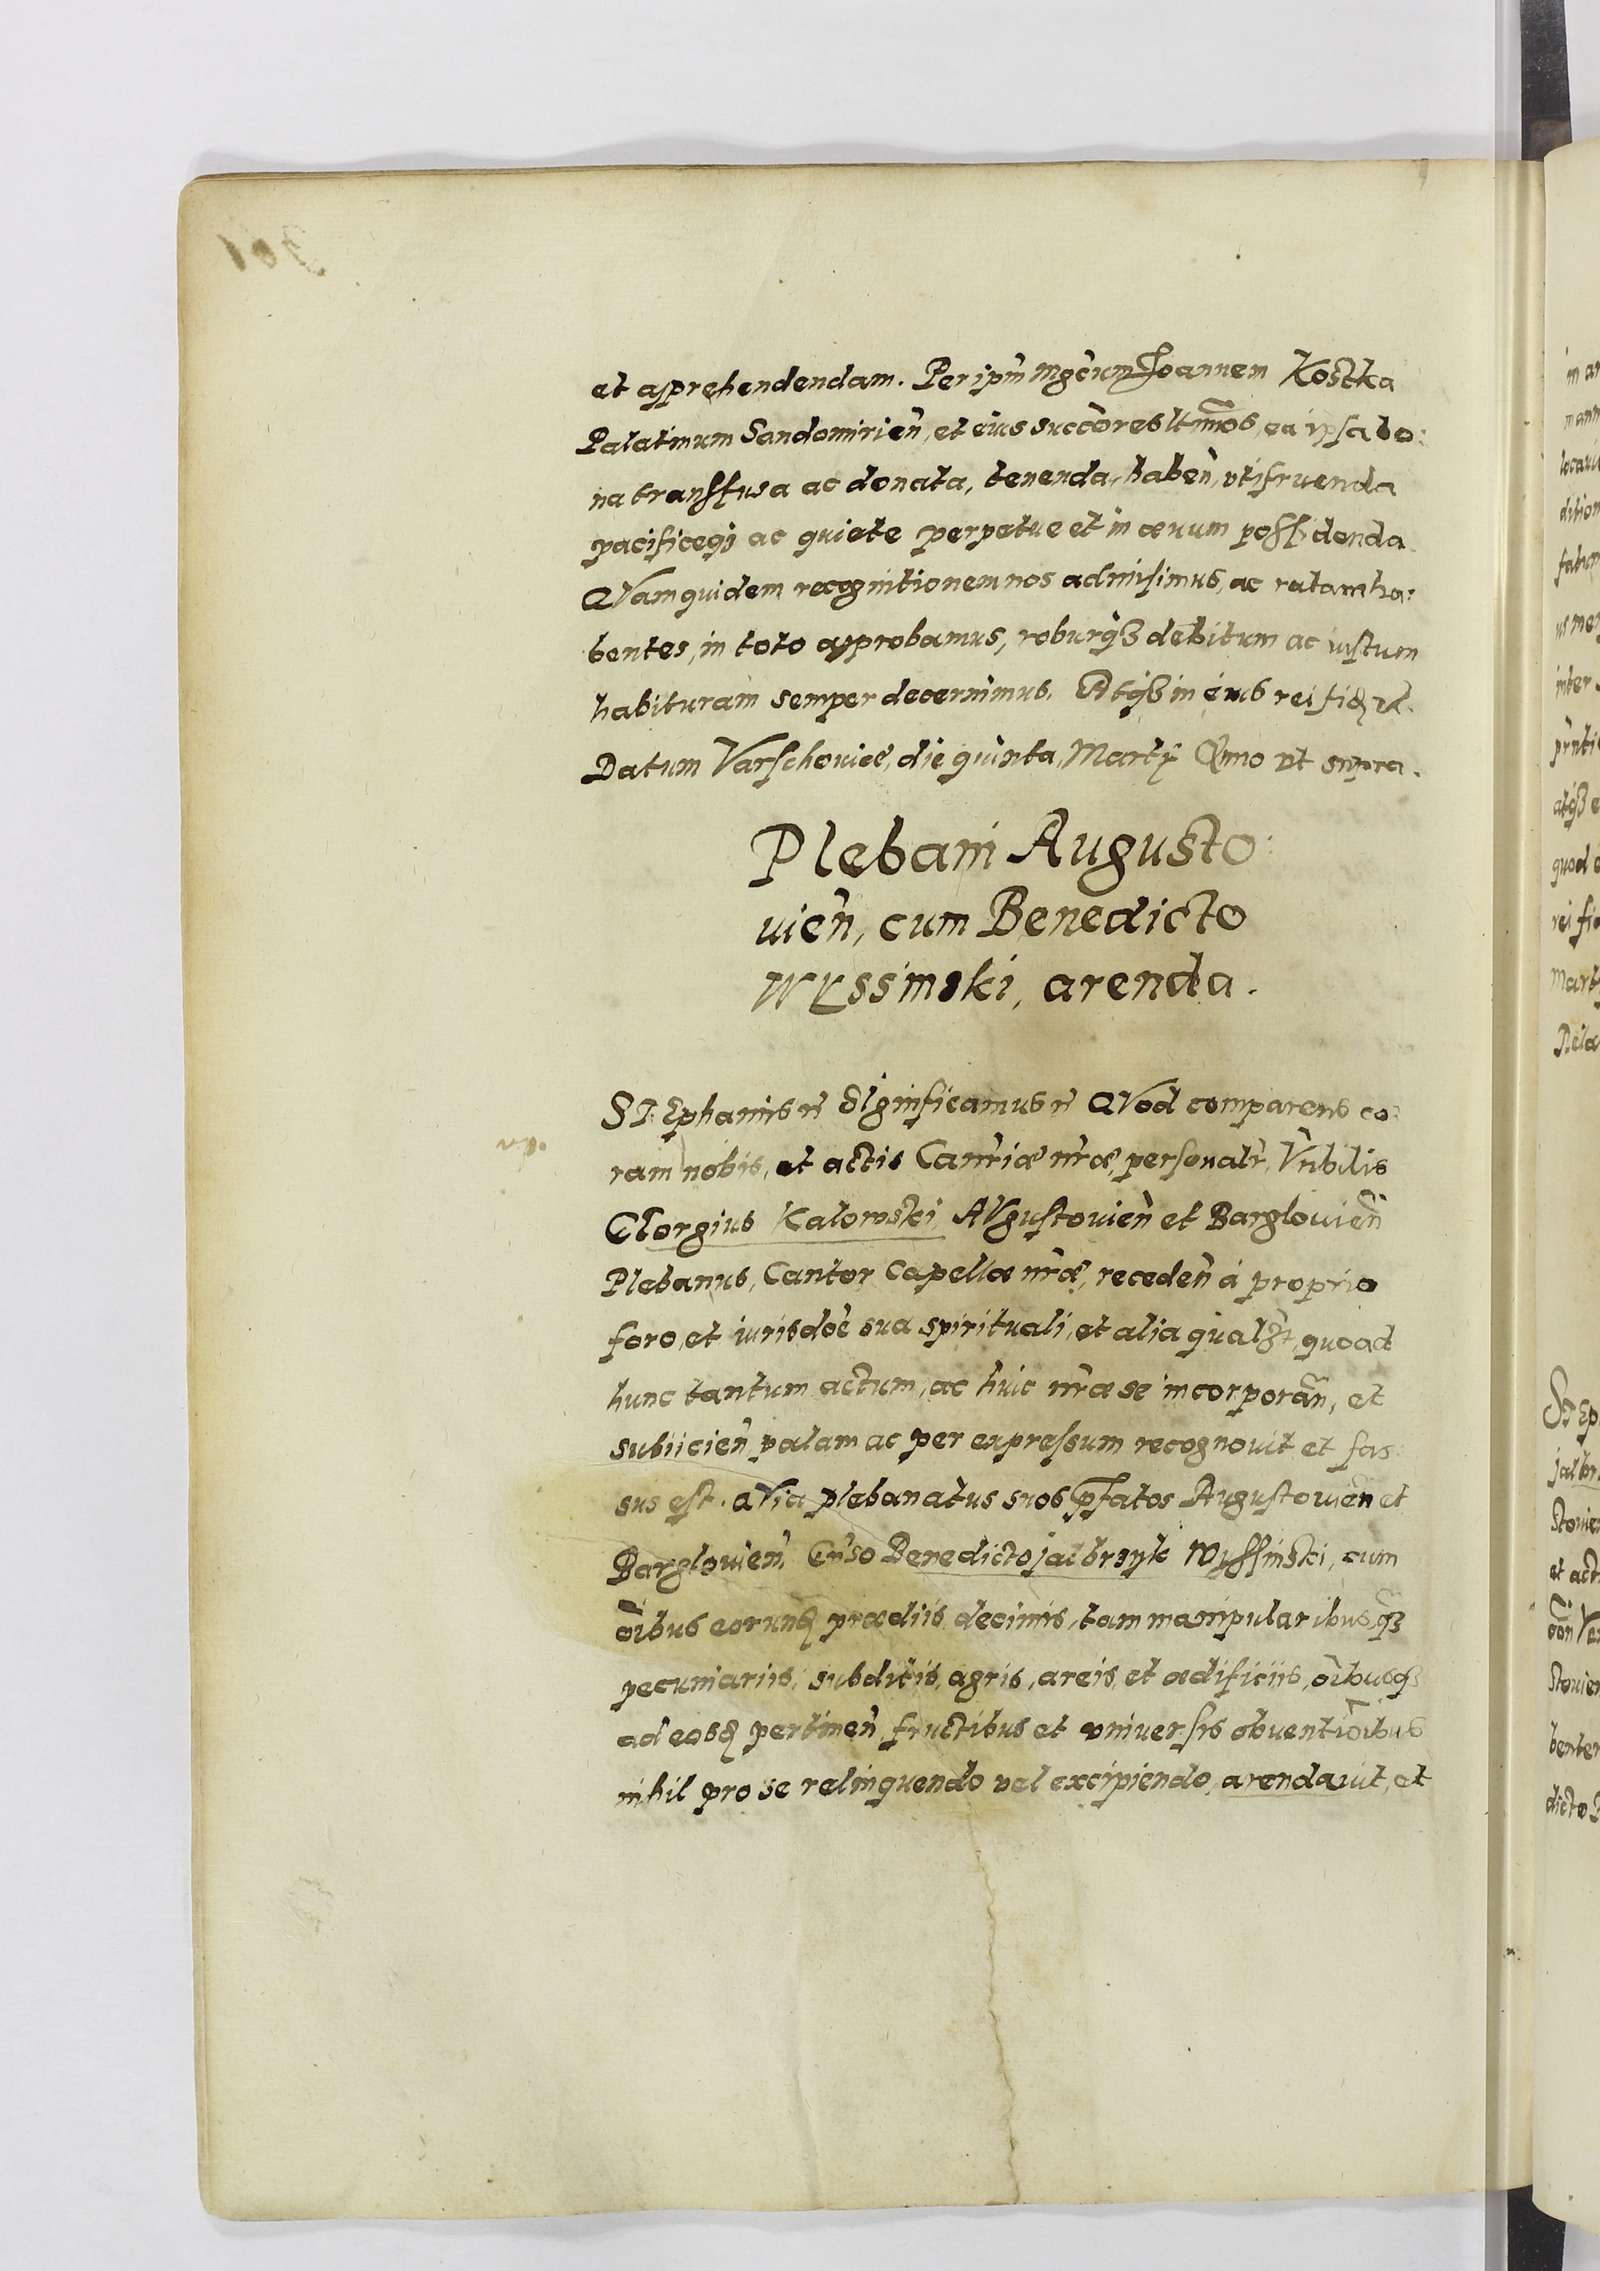 et apprehendendam. Per ipm̃ Mgĉum Joannem Kostka
Palatinum Sandomirieñ, et eius succ̃ores lt̃imos, ea ipsa bo:
na transfusa ac donata, tenenda, habeñ, vtifruenda
pacificeq; ac quiete perpetue et in æuum possidenda.
QVam quidem recognitionem nos admisimus, ac ratam ha:
bentes, in toto approbamus, roburq3 debitum ac iustum
habituram semper decernimus. Atq3 in eius rei fiđ ꝛc̃.
Datum Varschouiæ, die quinta, Martÿ Año vt supra.
Plebani Augusto:
uieñ, cum Benedicto
Wyssinski, arenda.
STEphanus ñ SIgnificamus ñ QVod comparens co:
ram nobis, et actis Cañriæ nr̃æ, personalr̃, Vñbilis
GEorgius Kalowski, AVgustouieñ et Bargłouieñ
Plebanus, Cantor Capellæ nr̃æ, recedeñ à proprio
foro, et iurisdõe sua spirituali, et alia qualȝt, quoad
hunc tantum actum, ac huic nr̃æ se incorporañ, et
subiicieñ, palam ac per expressum recognouit et fas:
sus est. QVia plebanatus suos p̃fatos Augustouieñ et
Bargłouieñ, Gñso Benedicto jałbrzyk Wyssinski, cum
õibus eorundȝ prædiis, decimis, tam manipularibus, q̃3
pecuniariis, subditis, agris, areis, et ædificiis, õibusq3
ad eosđ pertineñ, fructibus et vniuersis obuentiõibus
nihil pro se relinquendo vel excipiendo, arendauit, et